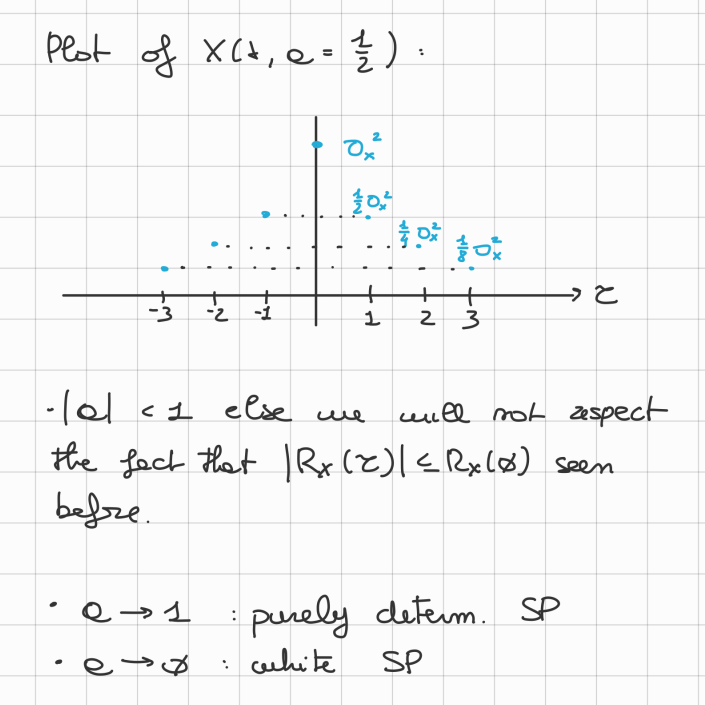 Plot of X(t, a = 1/2) :
σx²
1/2 σx²
1/4 σx²
1/8 σx²
-3 -2 -1 1 2 3 τ
· |a| < 1 else we will not respect
the fact that |Rx(τ)| ≤ Rx(∅) seen
before.
· a → 1 : purely determ. SP
· a → ∅ : white SP